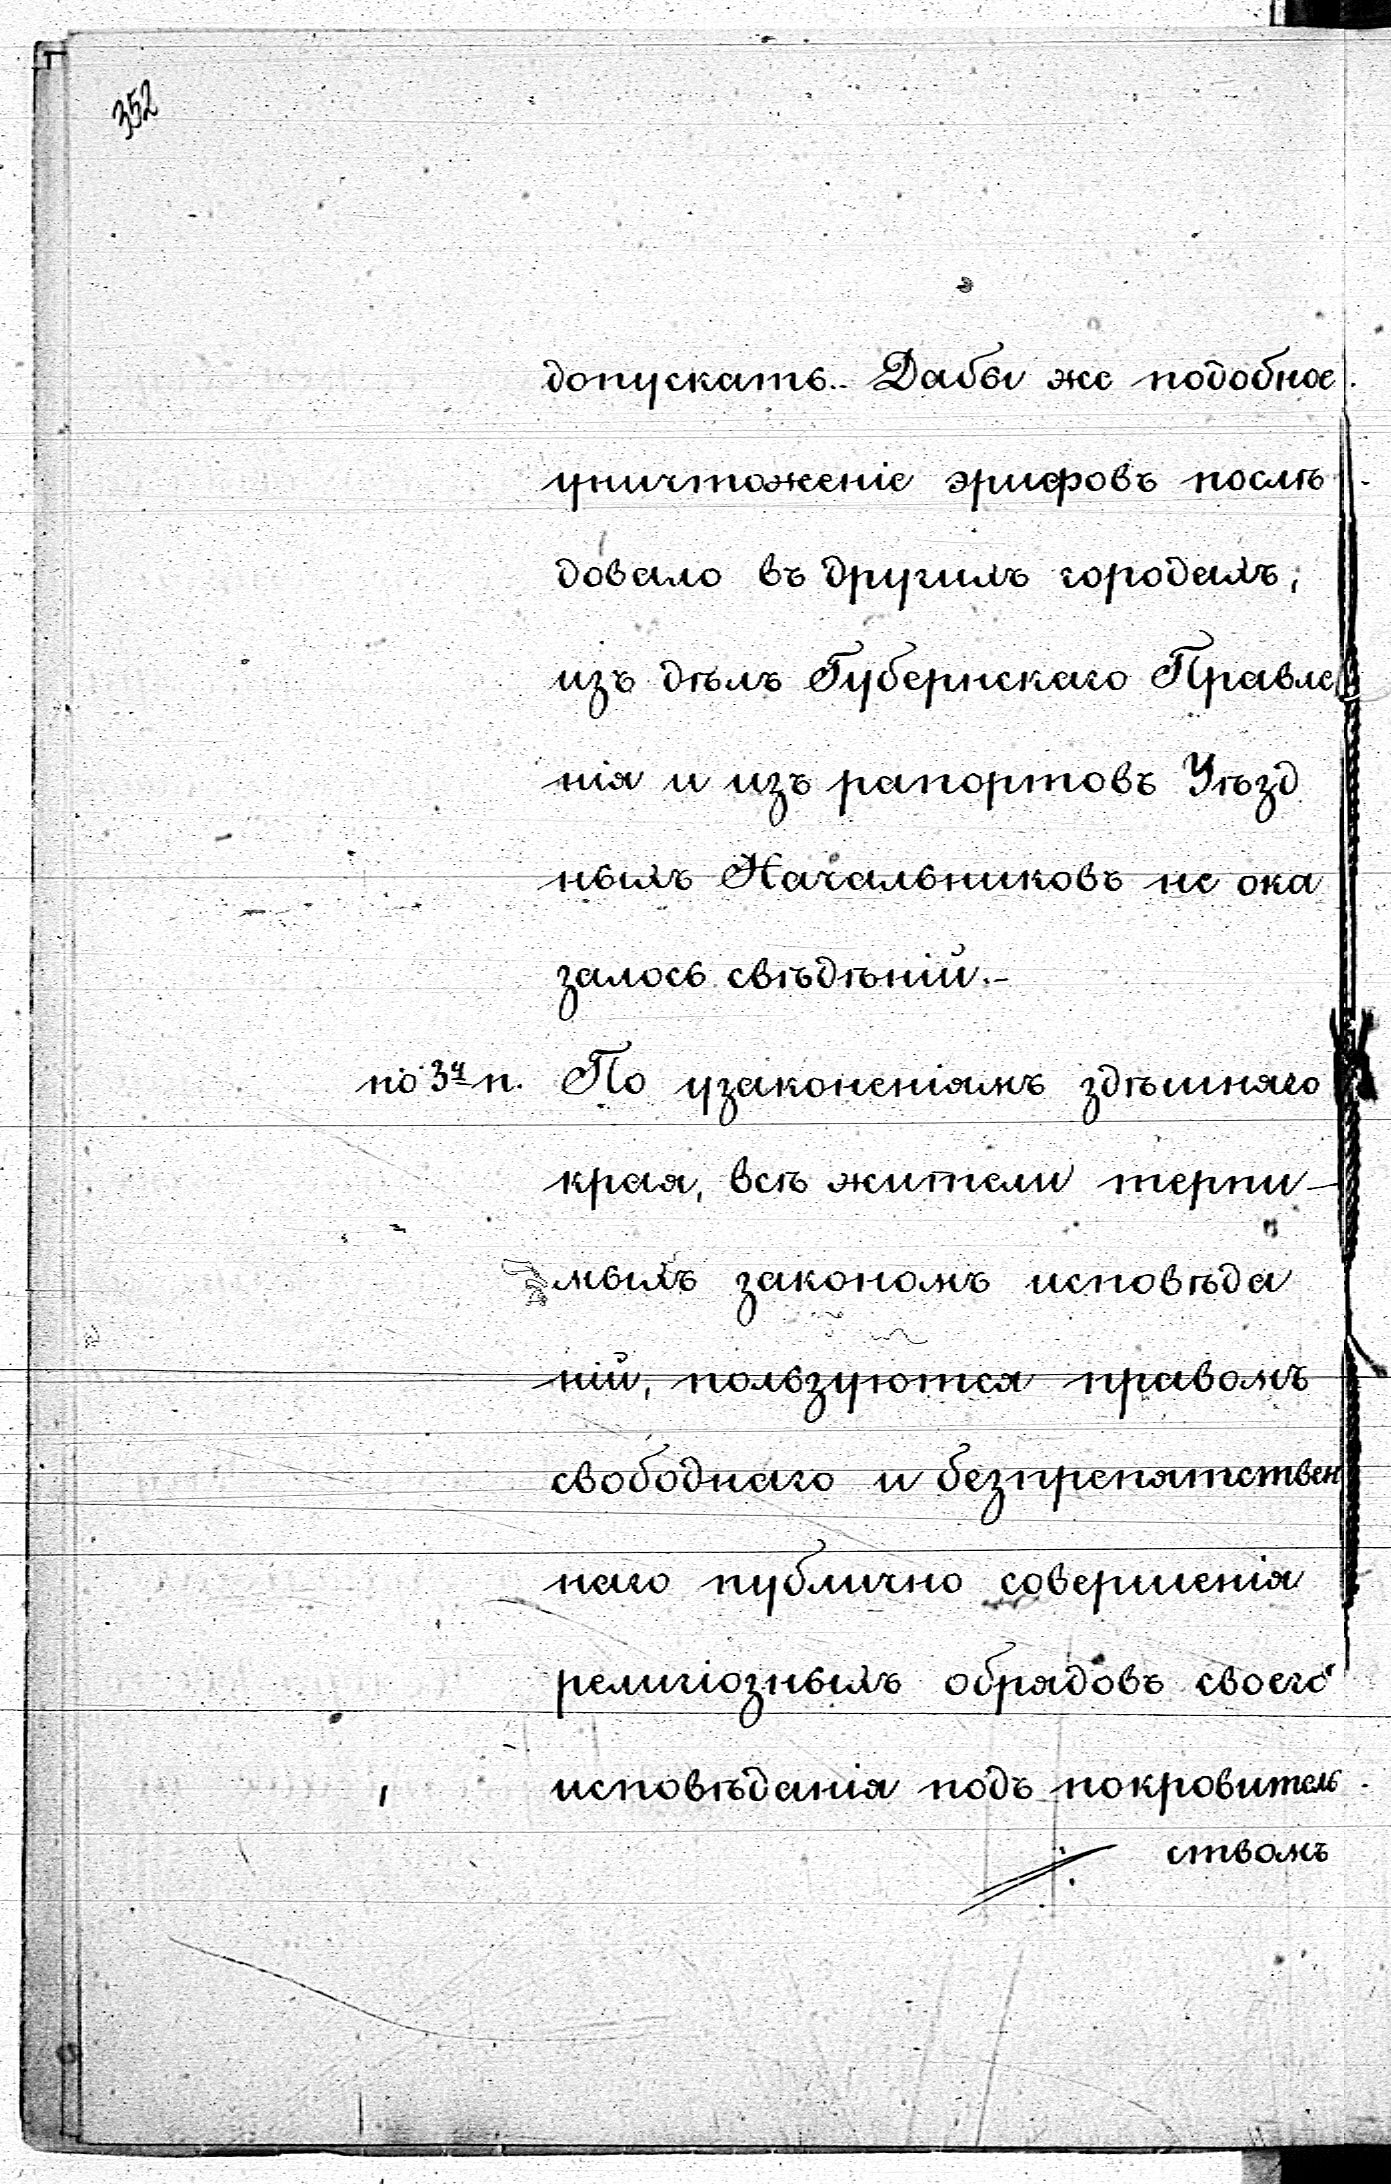 352
допускать.- Дабы же подобное
уничтоженіе эрифовъ послѣ
довало въ другихъ городахъ,
изъ дѣлъ Губернскаго Правле
нія и изъ рапортовъ Уѣзд
ныхъ Начальниковъ не ока
залось свѣдѣній.-
по 3му п. По узаконеніямъ здѣшняго
края, всѣ жители терпи-
мыхъ закономъ исповѣда
ній, пользуются правомъ
свободнаго и безпрепятствен
наго публично совершенія
религіозныхъ обрядовъ своего
исповѣданія подъ покровитель
ствомъ